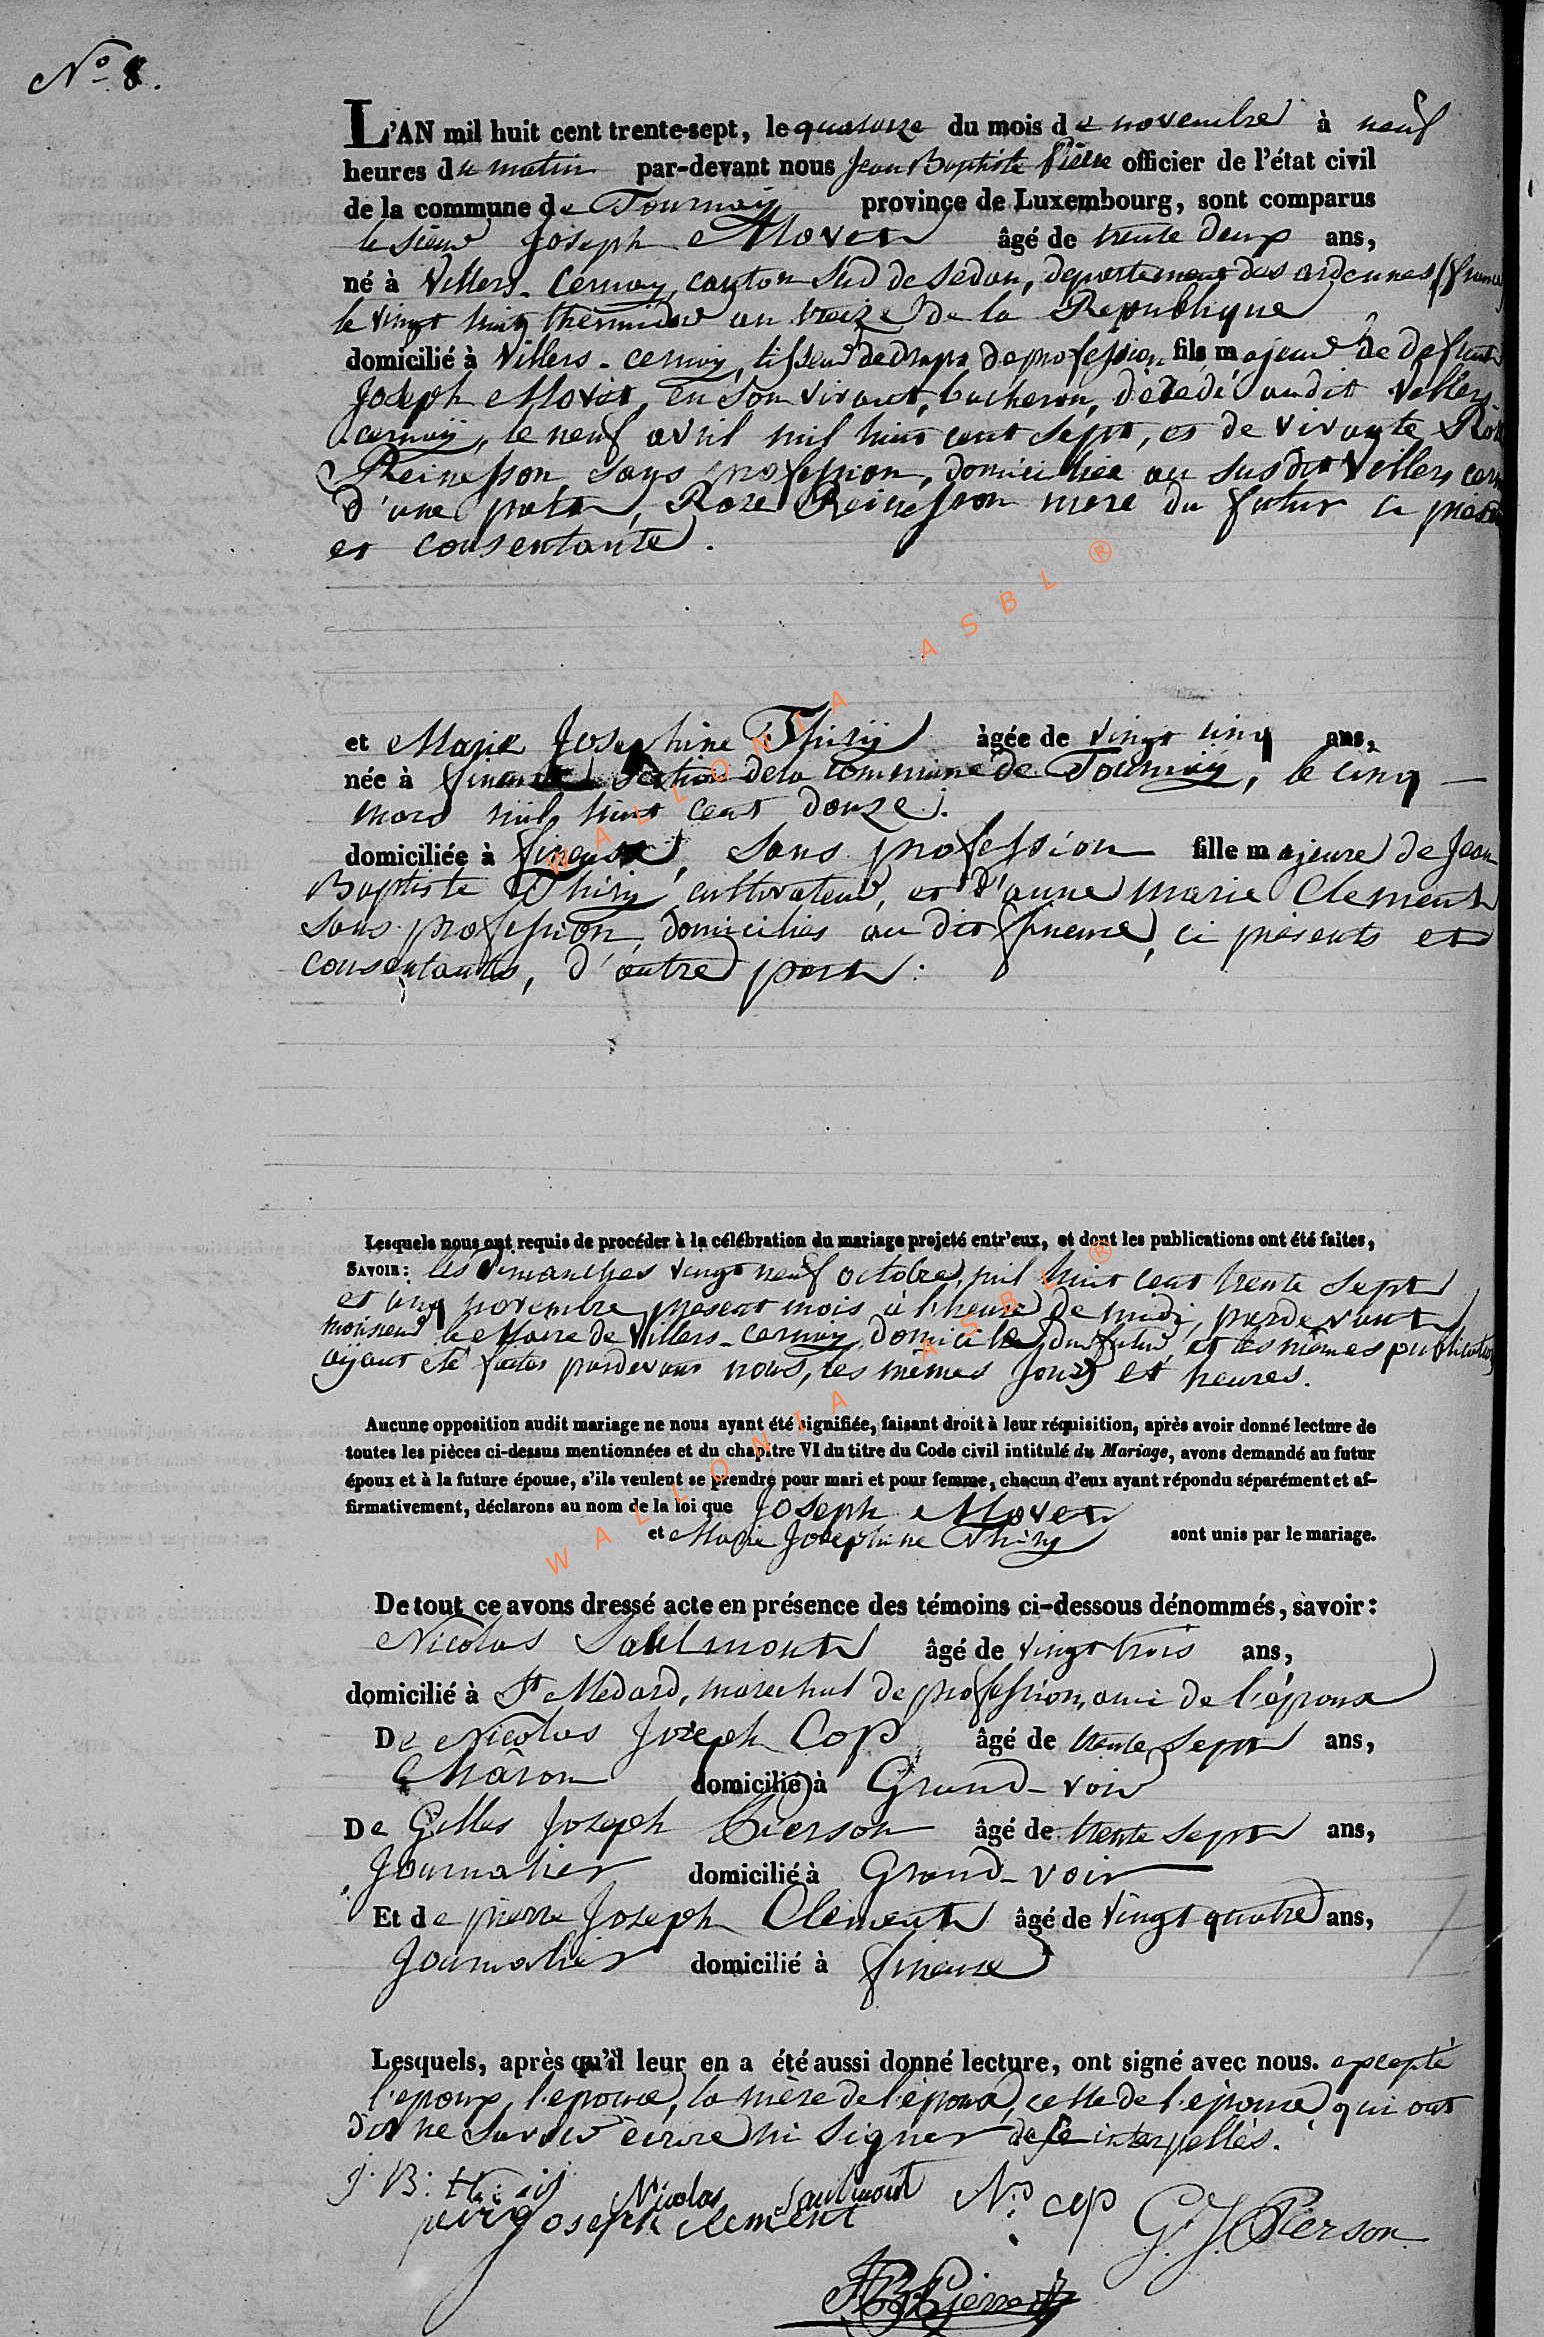 N.o 8.
L'AN mil huit cent trente-sept, le quatorze du mois de novembre à neuf
heures du matin par-devant nous Jean Baptiste Pierre officier de l'état civil
de la commune de Tournay province de Luxembourg, sont comparus
le sieur Joseph Movet âgé de trente deux ans,
né à Villers-Cernay, canton Sud de Sedan, departement des ardennes (france)
le vingt huit thermidor an treize de la Republique
domicilié à Villers-cernay, tisseur de draps de profession fils majeur de defunt
Joseph Movet, en son vivant, bucheron, décédé audit Villers
cernaÿ, le neuf avril mil huit cent sept, et de vivante Rose
Reinesson sans profession, domiciliée au susdit Villers cern
d'une part, Roze Reinesson mere du futur ci présente
et consentante.
et Marie Josephine Thirÿ âgée de vingt cinq ans,
née à fineuse Section de la Commune de Tournaÿ, le cinq
mars mil huit cent douze.
domiciliée à fineuse, sans profession fille majeure de Jean
Baptiste Thirÿ cultivateur, et d'anne marie Clement
sans profession, domiciliés au dit fineuse, ci présents et
consentants, d'autre part:
Lesquels nous ont requis de procéder à la célébration du mariage projeté entr'eux, et dont les publications ont été faites,
SAVOIR: les dimanches vingt neuf octobre, mil huit cent trente sept
et cinq novembre, present mois à l'heure de midi, pardevant
monsieur le Maire de Villers-cernay domicile du futur, et les mêmes publications
aÿant été faites pardevant nous, les mêmes jours et heures.
Aucune opposition audit mariage ne nous ayant été signifiée, faisant droit à leur réquisition, après avoir donné lecture de
toutes les pièces ci-dessus mentionnées et du chapitre VI du titre du Code civil intitulé du Mariage, avons demandé au futur
époux et à la future épouse, s'ils veulent se prendre pour mari et pour femme, chacun d'eux ayant répondu séparément et af-
firmativement, déclarons au nom de la loi que Joseph Movet
et Marie Josephine Thiry sont unis par le mariage.
De tout ce avons dressé acte en présence des témoins ci-dessous dénommés, savoir:
Nicolas Saulmont âgé de vingt trois ans,
domicilié à St Medard, marechal de profession, ami de l'épouse
De Nicolas Joseph Cop âgé de trente sept ans,
Mâson domicilié à Grand-voir
De Gilles Joseph Pierson âgé de trente sept ans,
Journalier domicilié à Grand-voir
Et de pierre Joseph Clement âgé de vingt quatre ans,
Journalier domicilié à fineuse
Lesquels, après qu'il leur en a été aussi donné lecture, ont signé avec nous. excepté
l'epoux, l'epouse, la mère de l'époux, celle de l'épouse, qui ont
dit ne savoir écrire ni signer de ce interpellés.
J. B: thirij Nicolas Saulmont N: cop G. J. Pierson
peirre joseph clement
JB Pierre
WALLONIA ASBL ®
WALLONIA ASBL ®